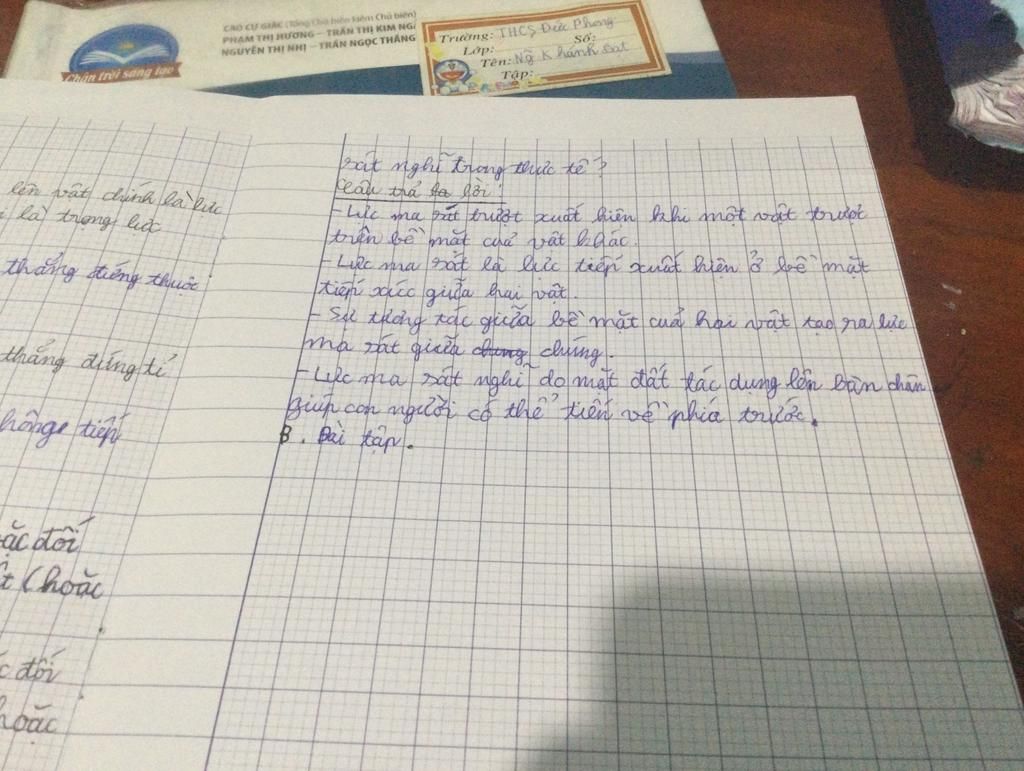 CAO CỰ GIÁC (Tổng Chủ biên kiêm Chủ biên)
PHẠM THỊ HƯƠNG – TRẦN THỊ KIM NG
NGUYỄN THỊ NHỊ – TRẦN NGỌC THẮNG
Chân trời sáng tạo
Trường: THCS Đức Phong
Lớp: Số:
Tên: Ngô Khánh Đạt
Tập:
lên vật chính là lực
i là trọng lực
thẳng đứng thuộc
thẳng đứng tỉ
hông tiếp
ặc đối
t (hoặc
c đối
hoặc
sát nghỉ trong thực tế?
Câu trả la lời:
- Lực ma sát trượt xuất hiện khi một vật trượt
trên bề mặt của vật khác.
- Lực ma sát là lực tiếp xuất hiện ở bề mặt
tiếp xúc giữa hai vật.
- Sự tương tác giữa bề mặt của hai vật tạo ra lực
ma sát giữa chúng chúng.
- Lực ma sát nghỉ do mặt đất tác dụng lên bàn chân
giúp con người có thể tiến về phía trước.
B. Bài tập.